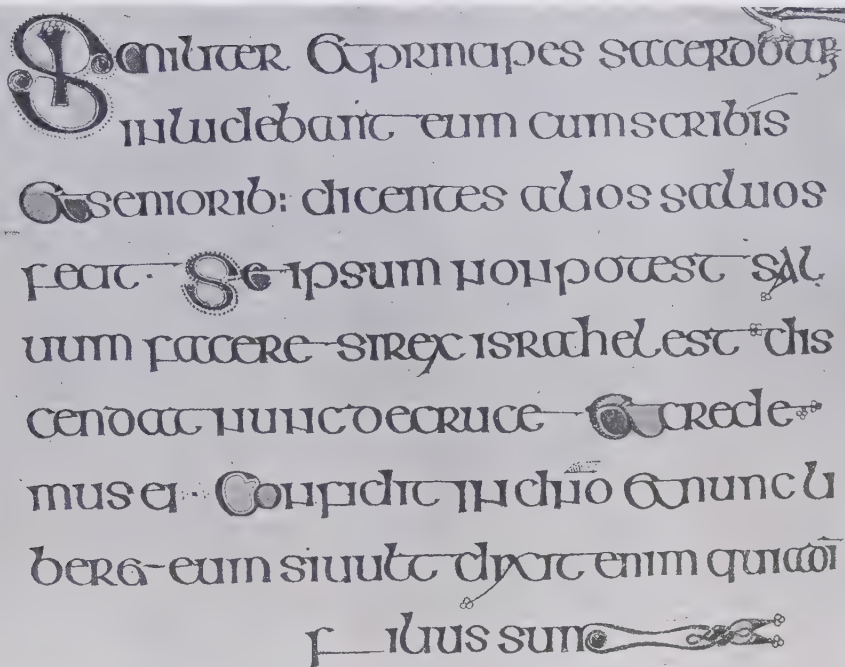 Similiter & principes sacerdotū
inludebant eum cum scribis
& seniorib: dicentes alios saluos
fecit · Se ipsum non potest sal
uum facere si rex israhel est dis
cendat nunc de cruce & crede
mus ei · Confidit in dn̄o & nunc li
ber& eum si uult dixit enim quia dī
filius sum